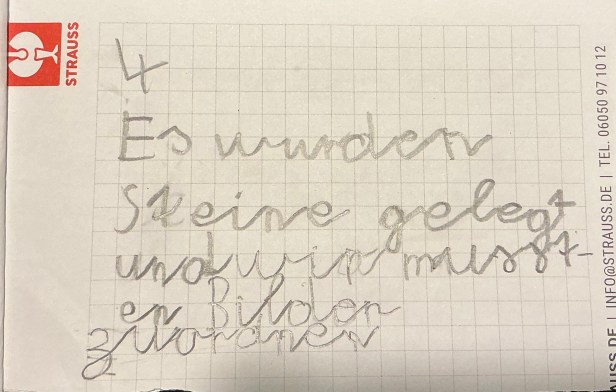 STRAUSS
4
Es wurden
Steine gelegt
und wir musst-
en Bilder
zuordnen
INFO@STRAUSS.DE | TEL. 06050 97 10 12